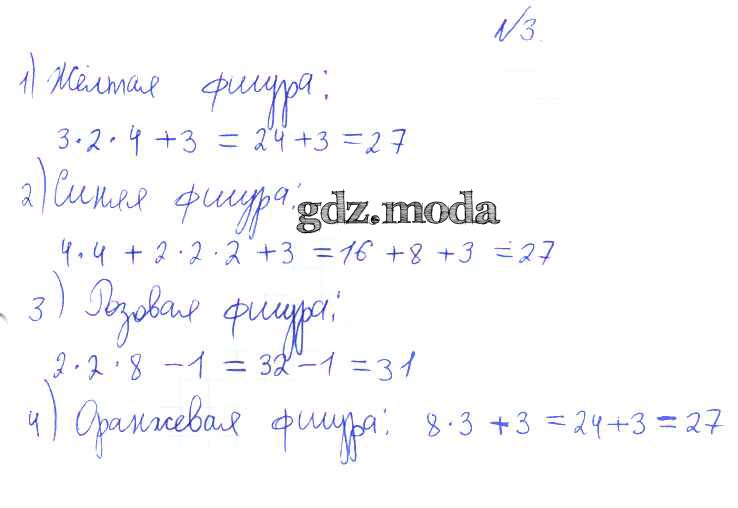 №3.
1) Жёлтая фигура:
3·2·4+3 = 24+3=27
2) Синяя фигура:
gdz.moda
4·4+2·2·2+3=16+8+3=27
3) Розовая фигура:
2·2·8-1=32-1=31
4) Оранжевая фигура: 8·3+3=24+3=27